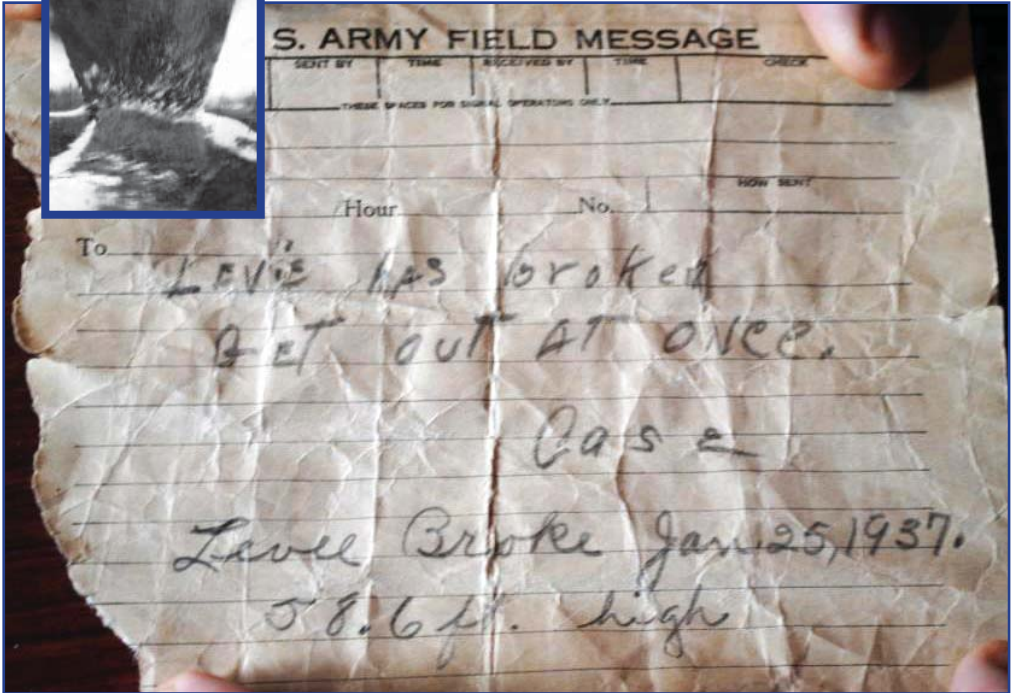 S. ARMY FIELD MESSAGE
SENT BY TIME RECEIVED BY TIME CHECK
THESE SPACES FOR SIGNAL OPERATORS ONLY
HOW SENT
Hour No.
To
LEVIE HAS broken
GET OUT AT ONCE.
Case
Levee Broke Jan. 25, 1937.
58.6 ft. high